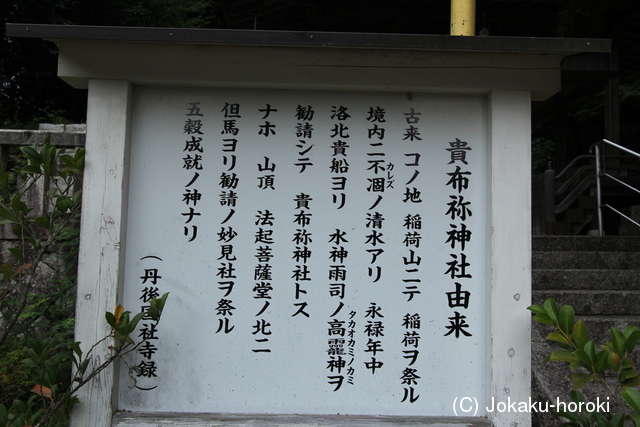 貴布祢神社由来
古来 コノ地 稲荷山ニテ 稲荷ヲ祭ル
境内ニ不凅ノ清水アリ 永禄年中
カレズ
洛北貴船ヨリ 水神雨司ノ高龗神ヲ
タカオカミノカミ
勧請シテ 貴布祢神社トス
ナホ 山頂 法起菩薩堂ノ北ニ
但馬ヨリ勧請ノ妙見社ヲ祭ル
五穀成就ノ神ナリ
(丹後国社寺録)
(C) Jokaku-horoki